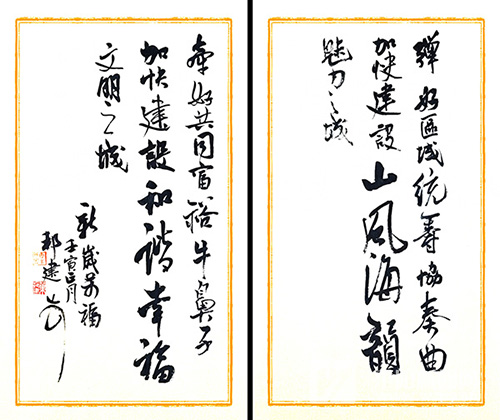 彈好區域統籌協奏曲
加快建設山風海韻
魅力之城
牽好共同富裕牛鼻子
加快建設和諧幸福
文明之城
新歲多福
壬寅正月